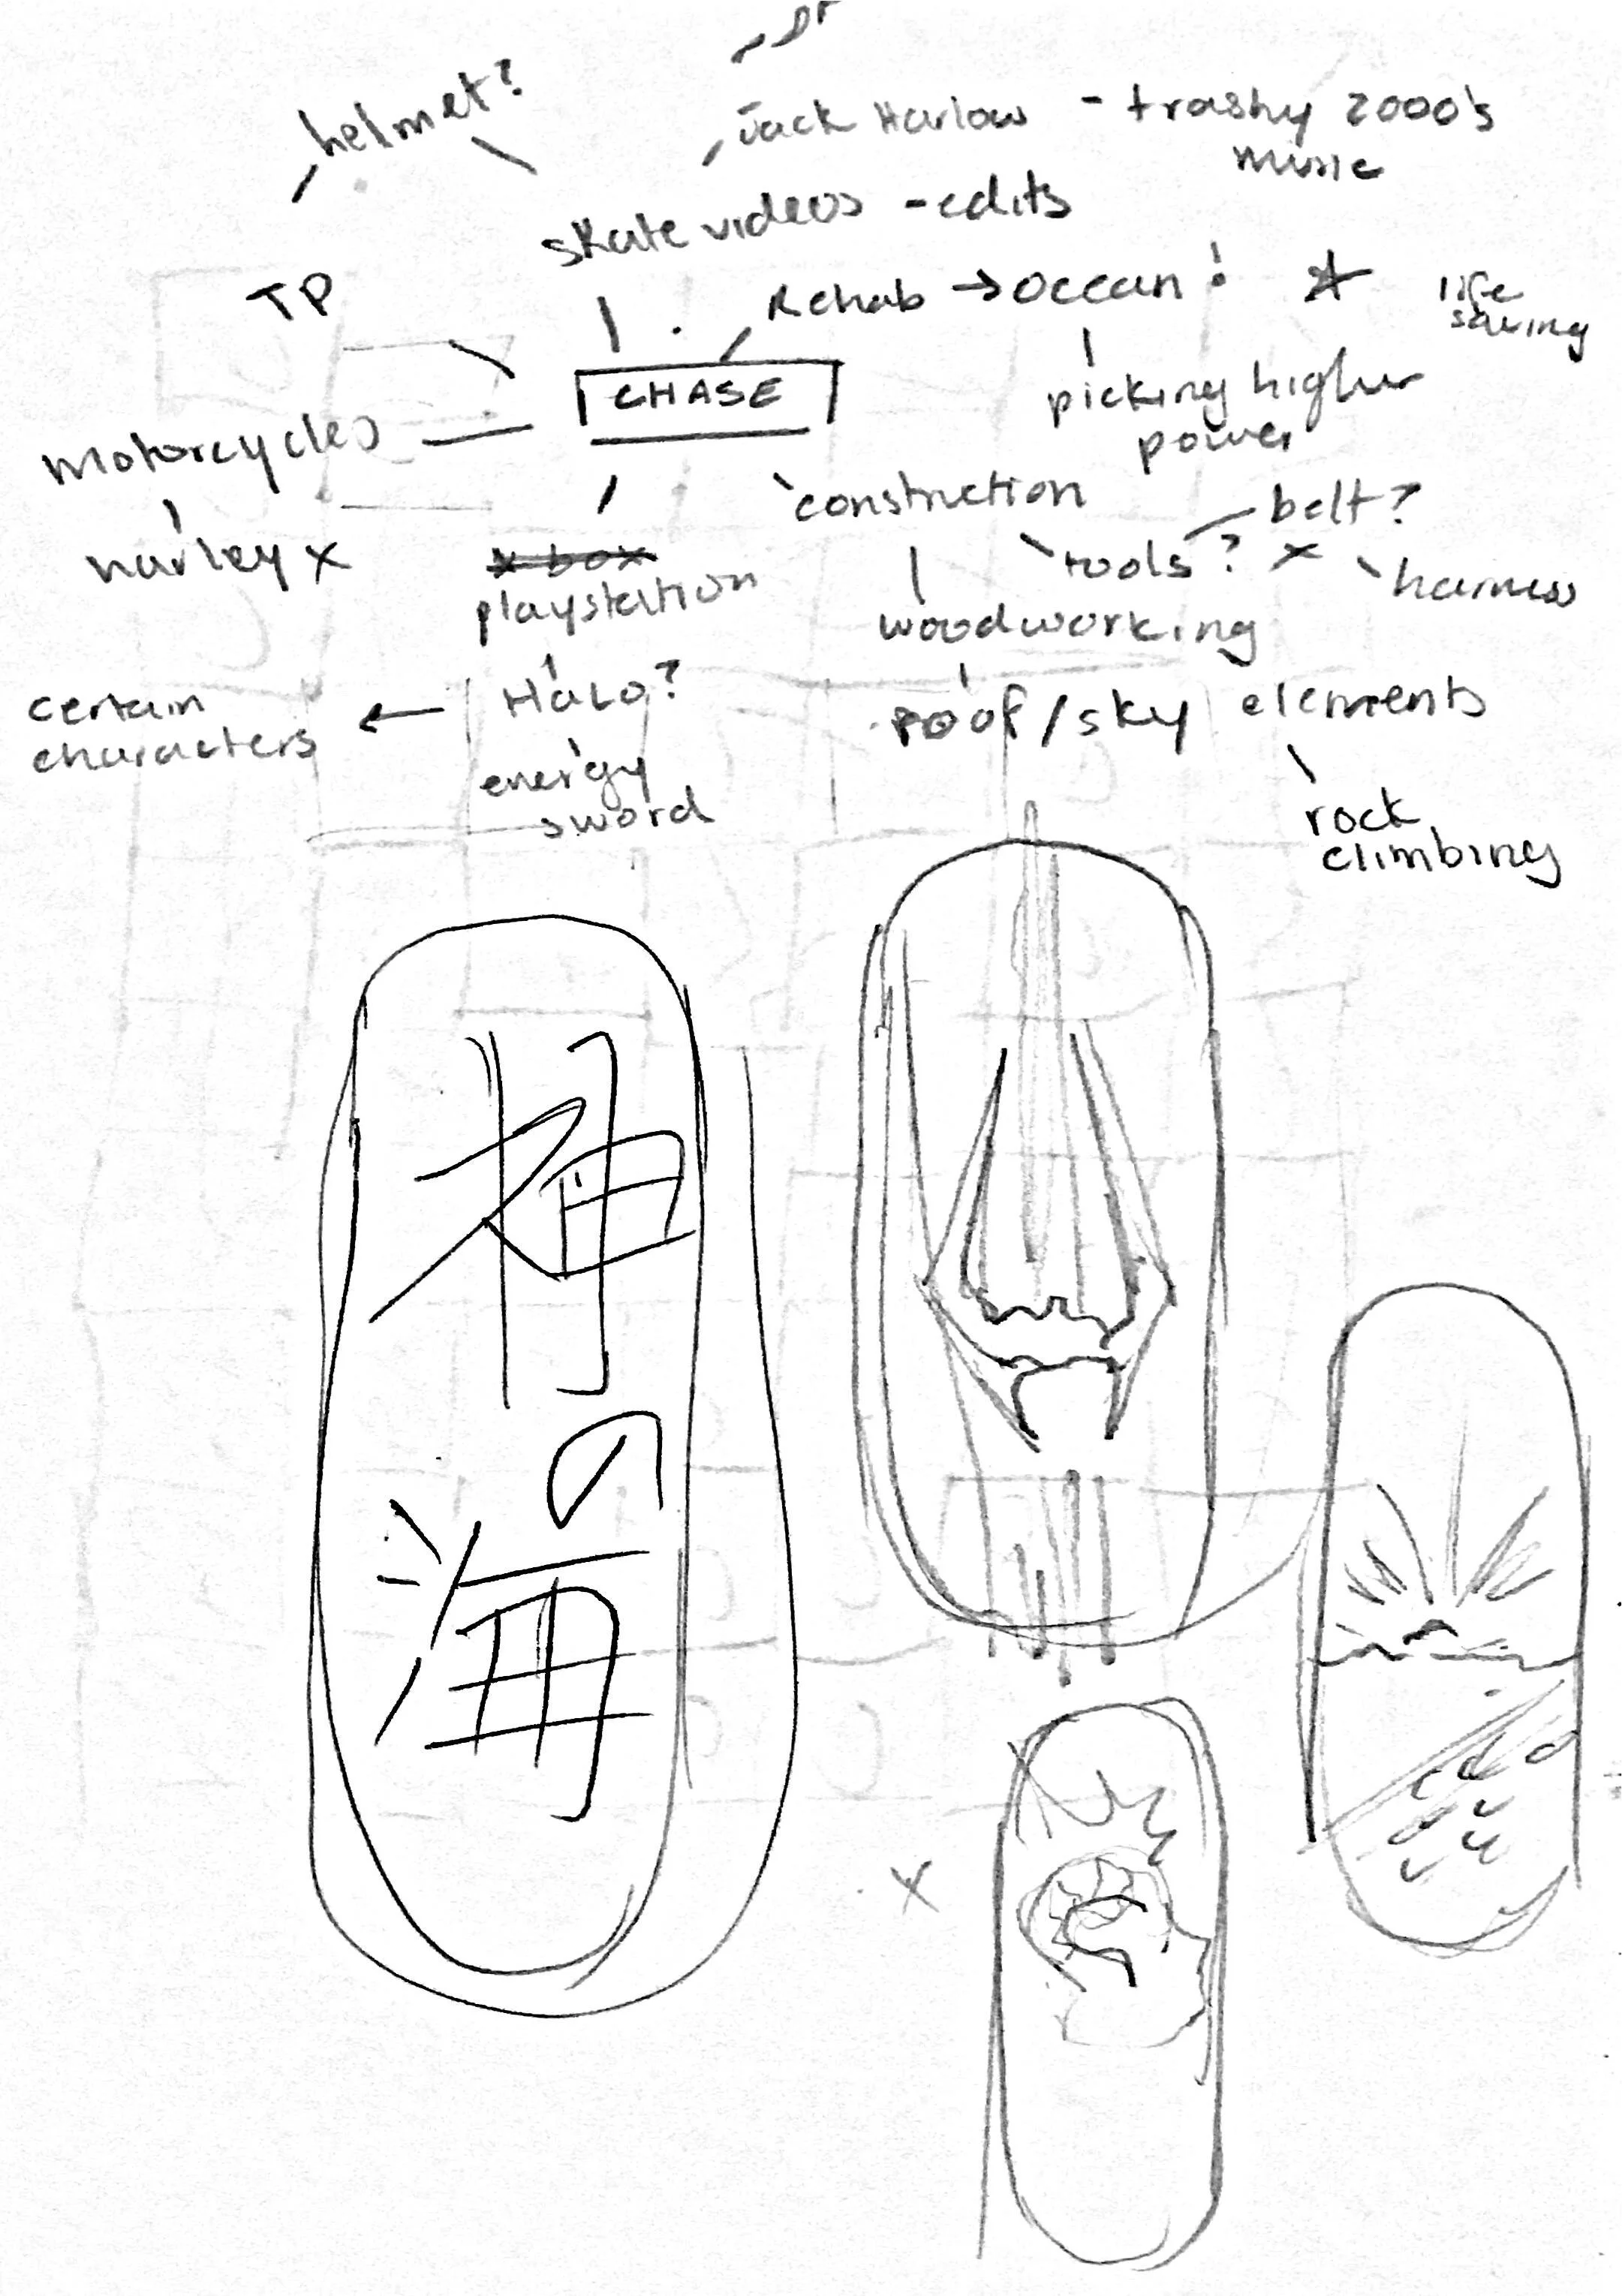 helmet?
Jack Harlow - trashy 2000's
music
skate videos - edits
TP
Rehab → occean!
life
saving
CHASE
picking higher
power
motorcycles
construction
belt?
harley x
x box
tools? x
harness
playstation
woodworking
certain
characters
← HALO?
roof/sky elements
energy
sword
rock
climbing
神
の
海
X